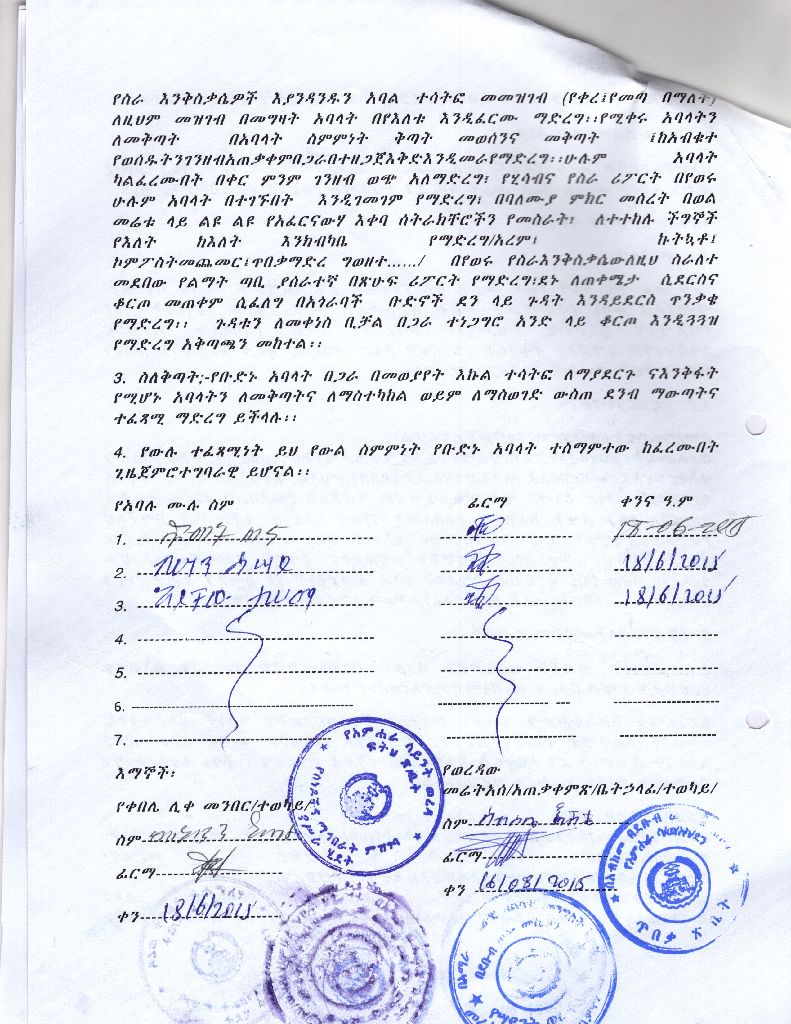 የስራ እንቅስቃሴዎች እያንዳንዱን አባል ተሳትፎ መመዝገብ (የቀረ፤የመጣ በማለት)
ለዚህም መዝገብ በመግዛት አባላት በየእለቱ እንዲፈርሙ ማድረግ፡፡የሚቀሩ አባላትን
ለመቅጣት በአባላት ስምምነት ቅጣት መወሰንና መቅጣት ፤ከአብቁተ
የወሰዱትንገንዘብአጠቃቀምበጋራበተዘጋጀእቅድእንዲመራየማድረግ፡፡ሁሉም አባላት
ካልፈረሙበት በቀር ምንም ገንዘብ ወጭ አለማድረግ፣ የሂሳብና የስራ ሪፖርት በየወሩ
ሁሉም አባላት በተገኙበት እንዲገመገም የማድረግ፣ በባለሙያ ምክር መሰረት በወል
መሬቱ ላይ ልዩ ልዩ የአፈርናውሃ እቀባ ስትራክቸሮችን የመስራት፣ ለተተከሉ ችግኞች
የእለት ከእለት እንክብካቤ የማድረግ/አረም፤ ኩትኳቶ፤
ኮምፖስትመጨመር፤ጥበቃማድረ ግወዘተ....../ በየወሩ የስራእንቅስቃሴውለዚህ ስራለተ
መደበው የልማት ጣቢ ያሰራተኛ በጽሁፍ ሪፖርት የማድረግ፡ደኑ ለጠቀሜታ ሲደርስና
ቆርጦ መጠቀም ሲፈለግ በአጎራባች ቡድኖች ደን ላይ ጉዳት እንዳይደርስ ጥንቃቄ
የማድረግ፡፡ ጉዳቱን ለመቀነስ ቢቻል በጋራ ተነጋግሮ አንድ ላይ ቆርጦ እንዲጓጓዝ
የማድረግ አቅጣጫን መከተል፡፡
3. ስለቅጣት;-የቡድኑ አባላት በጋራ በመወያየት እኩል ተሳትፎ ለማያደርጉ ናእንቅፋት
የሚሆኑ አባላትን ለመቅጣትና ለማስተካከል ወይም ለማስወገድ ውስጠ ደንብ ማውጣትና
ተፈጻሚ ማድረግ ይችላሉ፡፡
4. የውሉ ተፈጻሚነት ይህ የውል ስምምነት የቡድኑ አባላት ተስማምተው ከፈረሙበት
ጊዜጀምሮተግባራዊ ይሆናል፡፡
የአባሉ ሙሉ ስም ፊርማ ቀንና ዓ.ም
1.
2. 18/6/2015
3. 18/6/2015
4.
5.
6.
7.
እማኞች፡
የቀበሌ ሊቀ መንበር/ተወካይ/
ስም
ፊርማ
ቀን 18/6/2015
የወረዳው
መሬትአስ/አጠቃቀምጽ/ቤትኃላፊ/ተወካይ/
ስም
ፊርማ
ቀን 16/08/2015